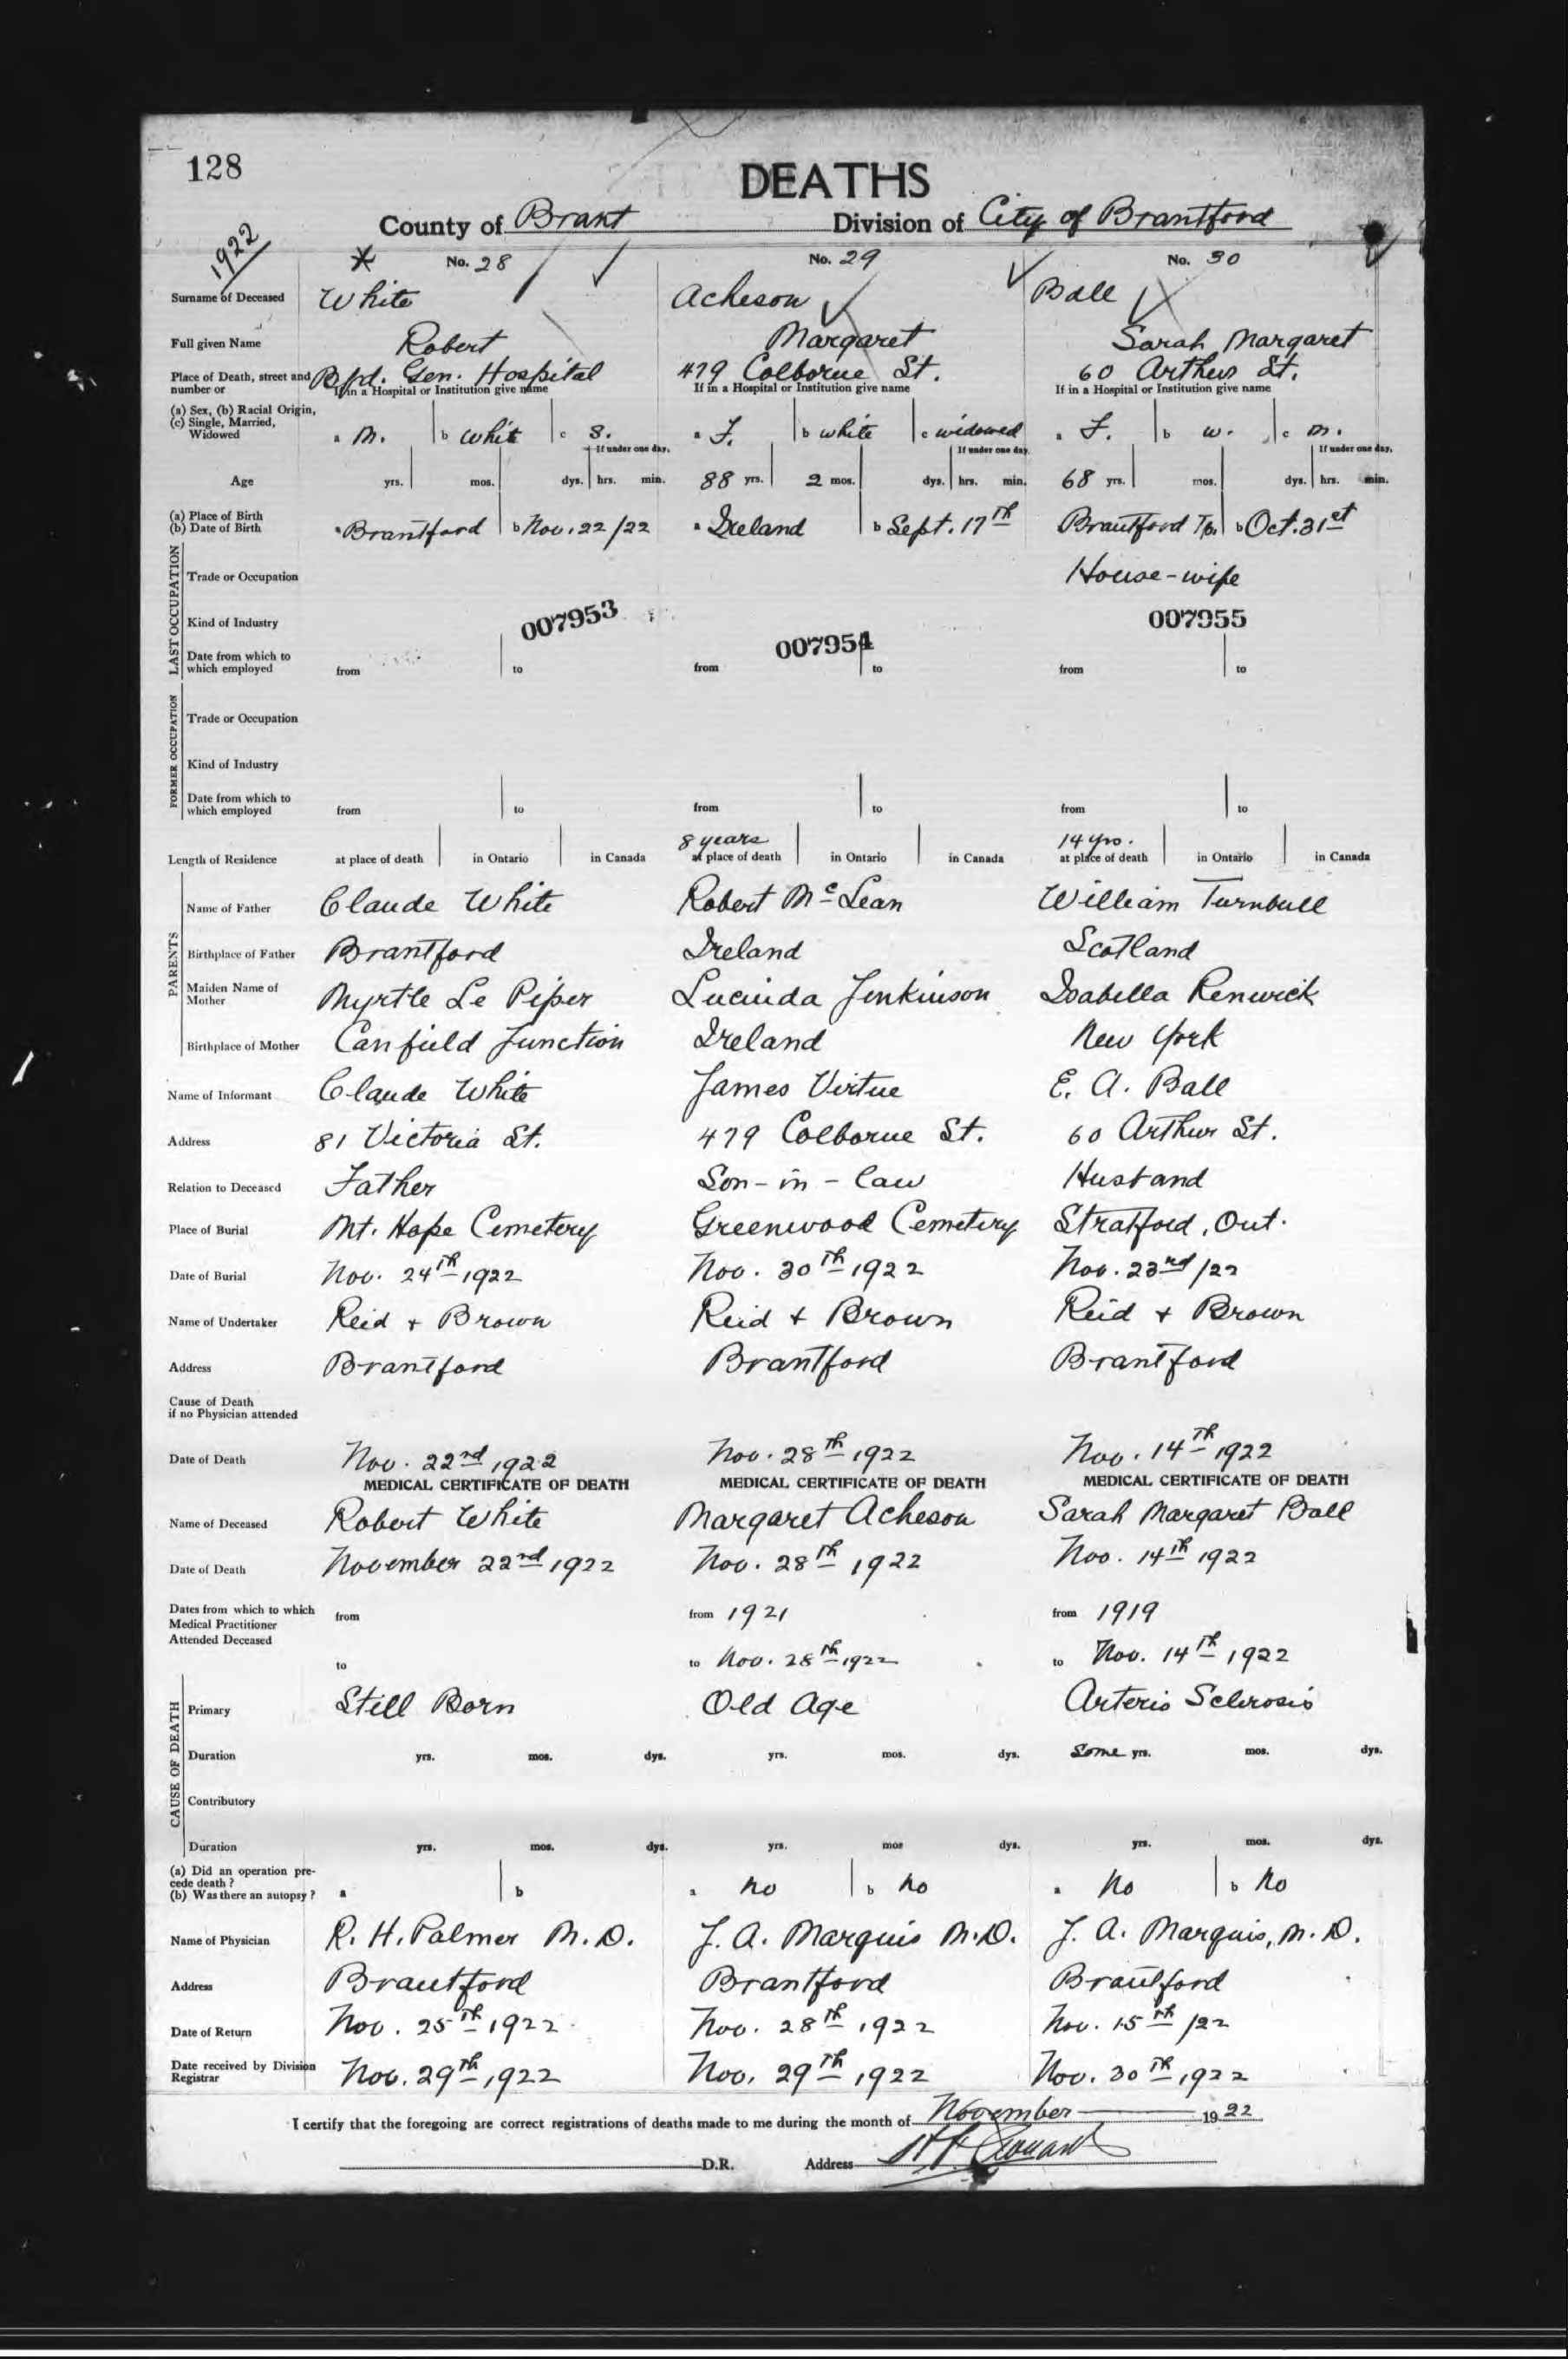 128
DEATHS
County of Brant Division of City of Brantford
1922
No. 28 No. 29 No. 30
Surname of Deceased White Acheson Ball
Full given Name Robert Margaret Sarah Margaret
Place of Death, street and number or Bfd. Gen. Hospital 479 Colborne St. 60 Arthur St.
If in a Hospital or Institution give name If in a Hospital or Institution give name If in a Hospital or Institution give name
(a) Sex, (b) Racial Origin, (c) Single, Married, Widowed a M. b White c S. a F. b white c widowed a F. b w. c m.
If under one day. If under one day. If under one day.
Age yrs. mos. dys. hrs. min. 88 yrs. 2 mos. dys. hrs. min. 68 yrs. mos. dys. hrs. min.
(a) Place of Birth (b) Date of Birth a Brantford b Nov. 22/22 a Ireland b Sept. 17th Brantford Tp. b Oct. 31st
LAST OCCUPATION
Trade or Occupation House-wife
Kind of Industry 007953 007954 007955
Date from which to which employed from to from to from to
FORMER OCCUPATION
Trade or Occupation
Kind of Industry
Date from which to which employed from to from to from to
8 years 14 yrs.
Length of Residence at place of death in Ontario in Canada at place of death in Ontario in Canada at place of death in Ontario in Canada
PARENTS
Name of Father Claude White Robert McLean William Turnbull
Birthplace of Father Brantford Ireland Scotland
Maiden Name of Mother Myrtle Le Piper Lucinda Jenkinson Isabella Renwick
Birthplace of Mother Canfield Junction Ireland New York
Name of Informant Claude White James Virtue E. A. Ball
Address 81 Victoria St. 479 Colborne St. 60 Arthur St.
Relation to Deceased Father Son-in-law Husband
Place of Burial Mt. Hope Cemetery Greenwood Cemetery Stratford, Ont.
Date of Burial Nov. 24th 1922 Nov. 30th 1922 Nov. 23rd/22
Name of Undertaker Reid + Brown Reid + Brown Reid + Brown
Address Brantford Brantford Brantford
Cause of Death if no Physician attended
Date of Death Nov. 22nd, 1922 Nov. 28th 1922 Nov. 14th 1922
MEDICAL CERTIFICATE OF DEATH MEDICAL CERTIFICATE OF DEATH MEDICAL CERTIFICATE OF DEATH
Name of Deceased Robert White Margaret Acheson Sarah Margaret Ball
Date of Death November 22nd 1922 Nov. 28th 1922 Nov. 14th 1922
Dates from which to which Medical Practitioner Attended Deceased from from 1921 from 1919
to to Nov. 28th 1922 to Nov. 14th 1922
CAUSE OF DEATH
Primary Still Born Old Age Arterio Sclerosis
Duration yrs. mos. dys. yrs. mos. dys. Some yrs. mos. dys.
Contributory
Duration yrs. mos. dys. yrs. mos dys. yrs. mos. dys.
(a) Did an operation precede death? (b) Was there an autopsy? a b a no b no a No b No
Name of Physician R. H. Palmer M.D. J. A. Marquis M.D. J. A. Marquis, M.D.
Address Brantford Brantford Brantford
Date of Return Nov. 25th 1922 Nov. 28th 1922 Nov. 15th /22
Date received by Division Registrar Nov. 29th, 1922 Nov. 29th, 1922 Nov. 30th, 1922
I certify that the foregoing are correct registrations of deaths made to me during the month of November 1922
D.R. Address